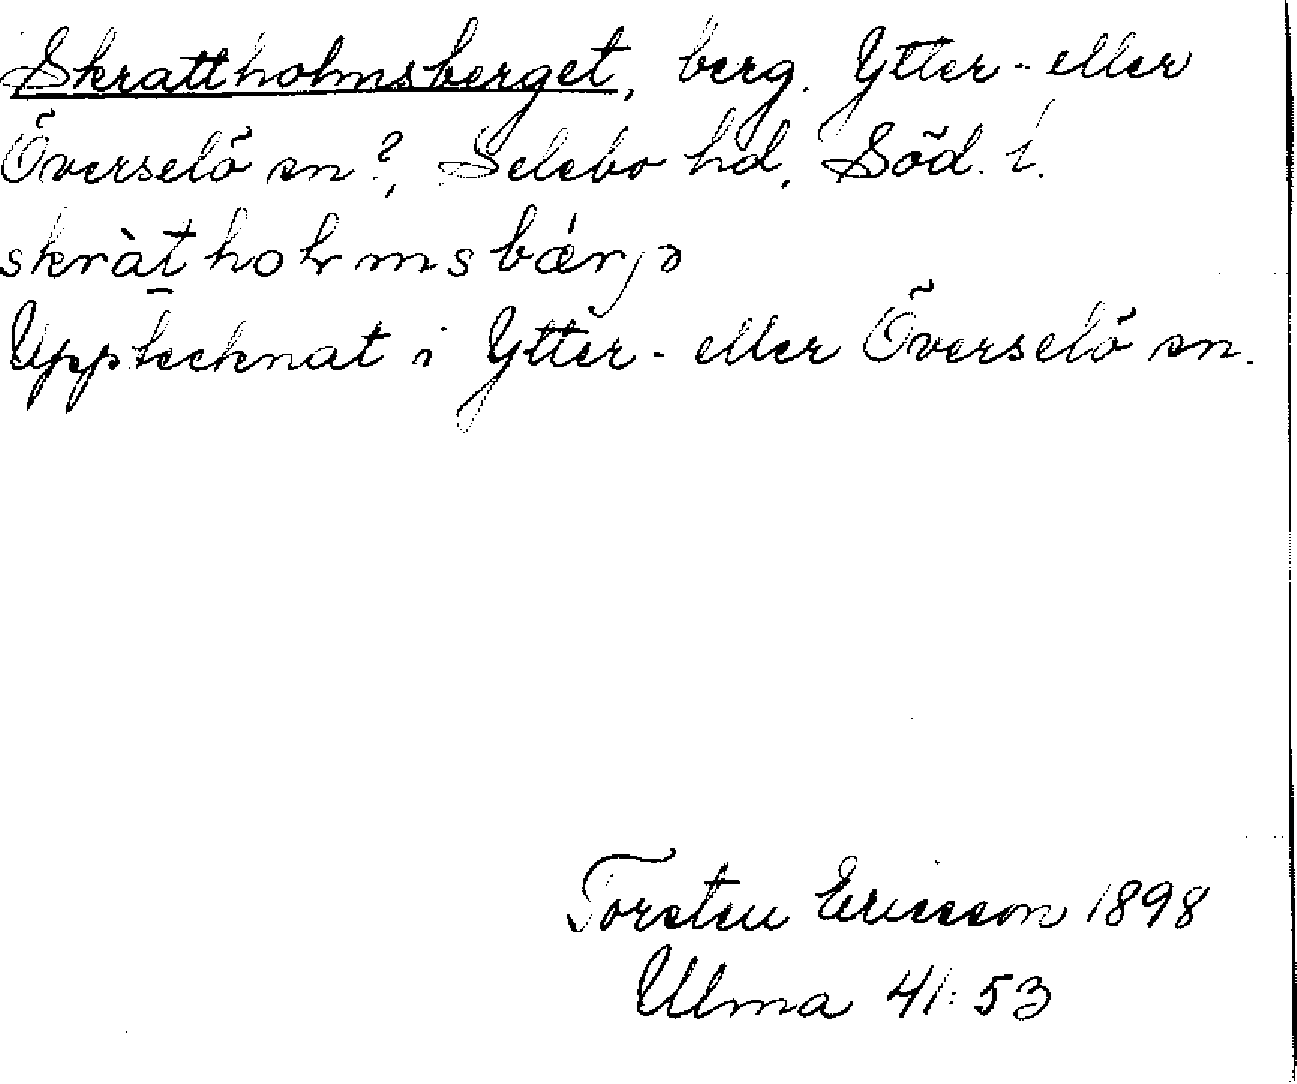 Skrattholmsberget, berg. Ytter- eller
Överselö sn?, Selebo hd, Söd. l.
skràt holmsbǽrjə
Upptecknat i Ytter- eller Överselö sn.
Torsten Ericsson 1898
Ulma 41:53